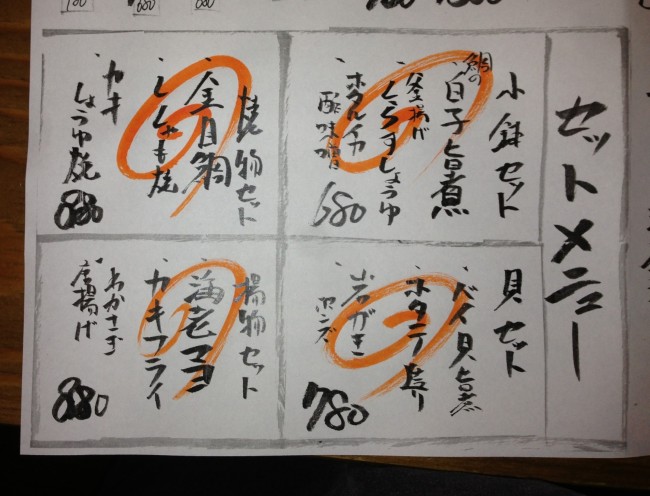 セットメニュー
小鉢セット
鯛の白子旨煮
釜揚げしらすしょうゆ
ホタルイカ
酢味噌
680
貝セット
バイ貝旨煮
ホタテ造り
岩がき
ポンズ
780
焼物セット
金目鯛
ししゃも焼
カキ
しょうゆ焼
880
揚物セット
海老マヨ
カキフライ
わかさぎ
唐揚げ
880